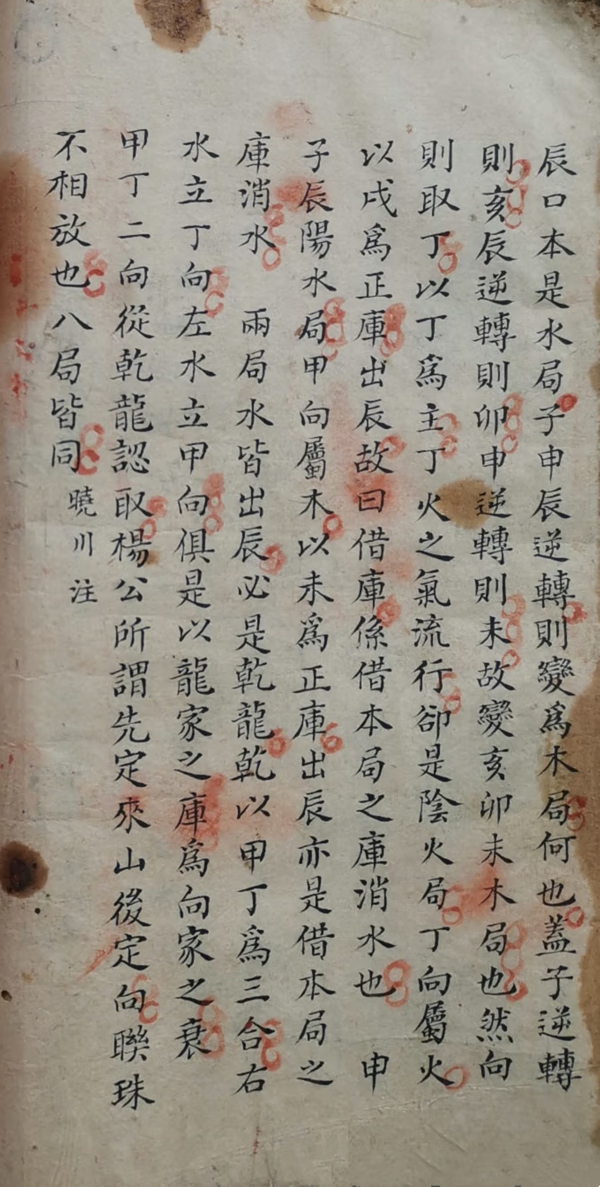 辰口本是水局子申辰逆轉則變爲木局何也蓋子逆轉
則亥辰逆轉則卯申逆轉則未故變亥卯未木局也然向
則取丁以丁爲主丁火之氣流行卻是陰火局丁向屬火
以戌爲正庫出辰故曰借庫係借本局之庫消水也　申
子辰陽水局甲向屬木以未爲正庫出辰亦是借本局之
庫消水　兩局水皆出辰必是乾龍乾以甲丁爲三合右
水立丁向左水立甲向俱是以龍家之庫爲向家之衰
甲丁二向從乾龍認取楊公所謂先定來山後定向聯珠
不相放也八局皆同　曉川注